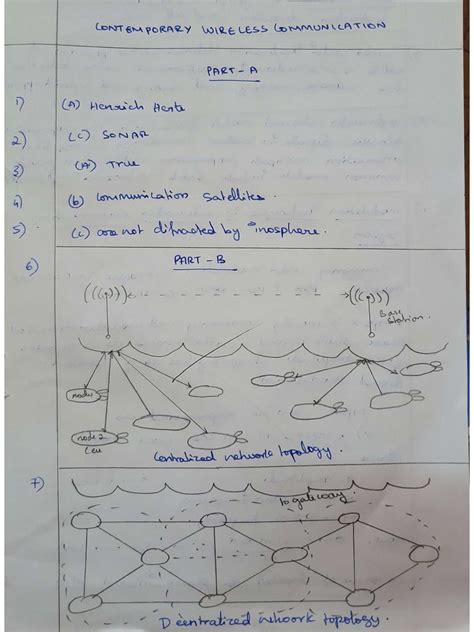 CONTEMPORARY WIRELESS COMMUNICATION
PART-A
1) (A) Henrich Herte
2) (C) SONAR
3) (A) True
4) (b) communication satellites.
5) (c) are not difracted by inosphere.
PART-B
6)
Base
station.
node1
node 2
Centralized network topology.
7)
to gateway
Decentralized network topology.